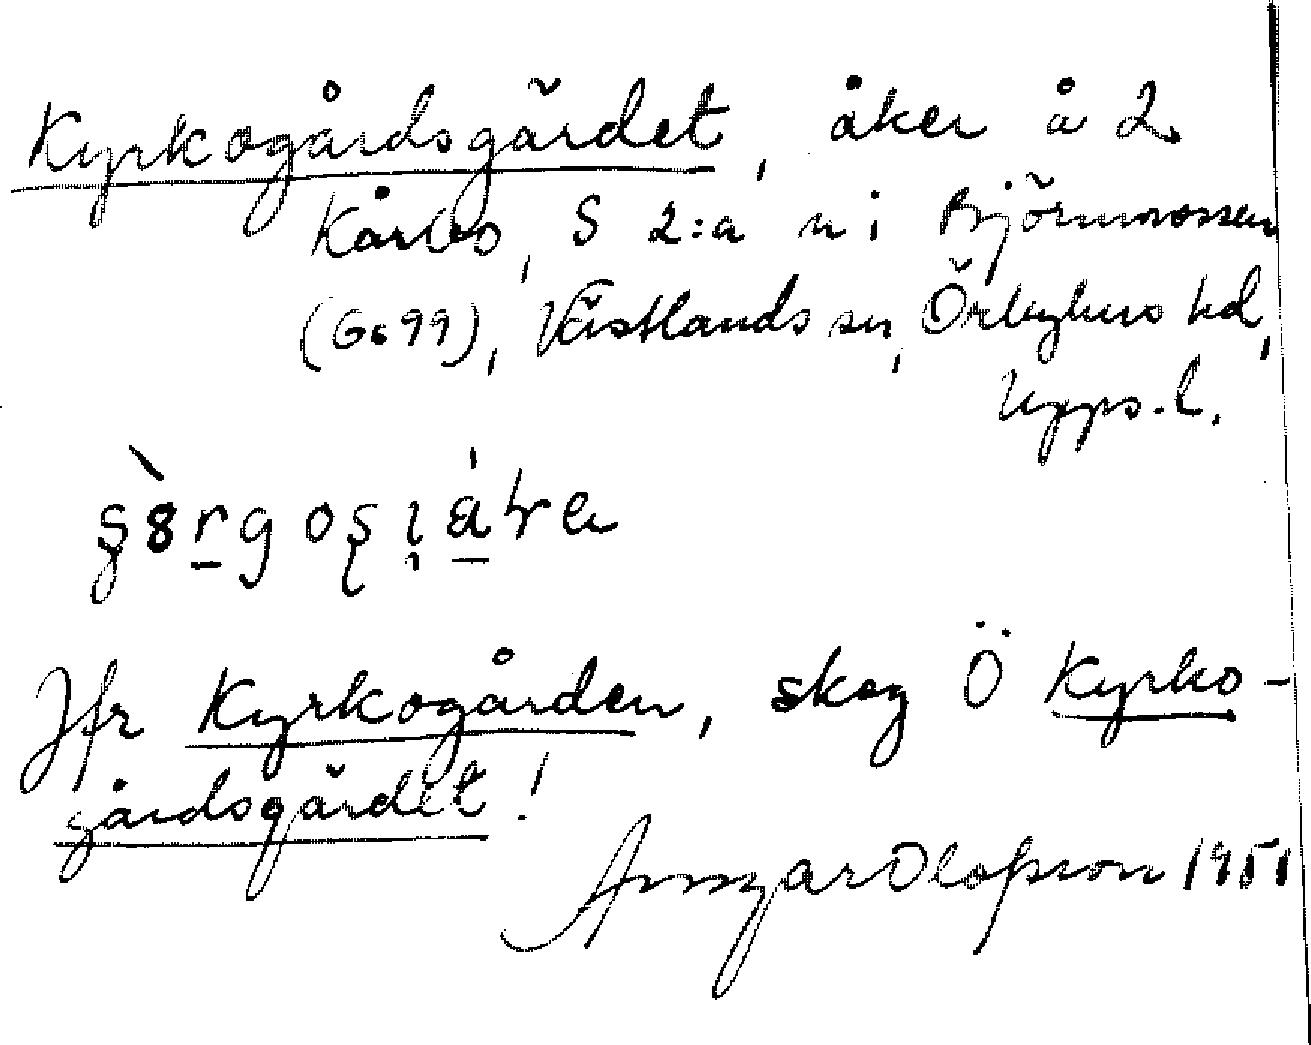 Kyrkogårdsgärdet, åker å 2
Kårbo, S 2:a n i Björnmossen
(Go 99), Västlands sn, Örbyhus hd,
Upps. l.
Jfr Kyrkogården, skog Ö Kyrko-
gårdsgärdet!
Ansgar Olofsson 1951